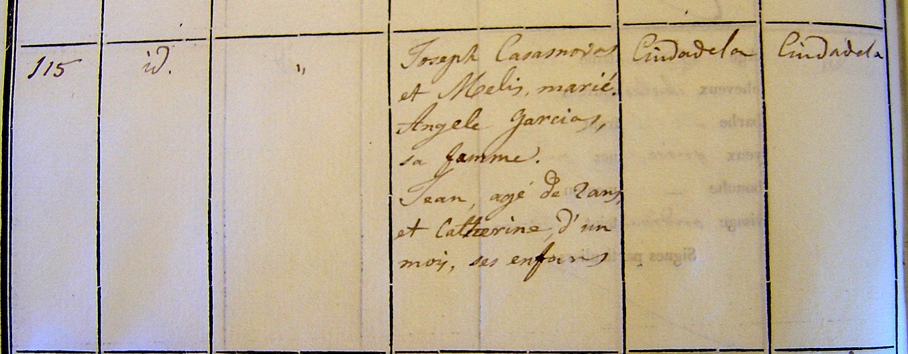 115 id. " Joseph Casasnovas Ciudadela Ciudadela
et Melis, marié.
Angele Garcias,
sa famme.
Jean, agé de 2 ans,
et Catherine, d'un
mois, ses enfans